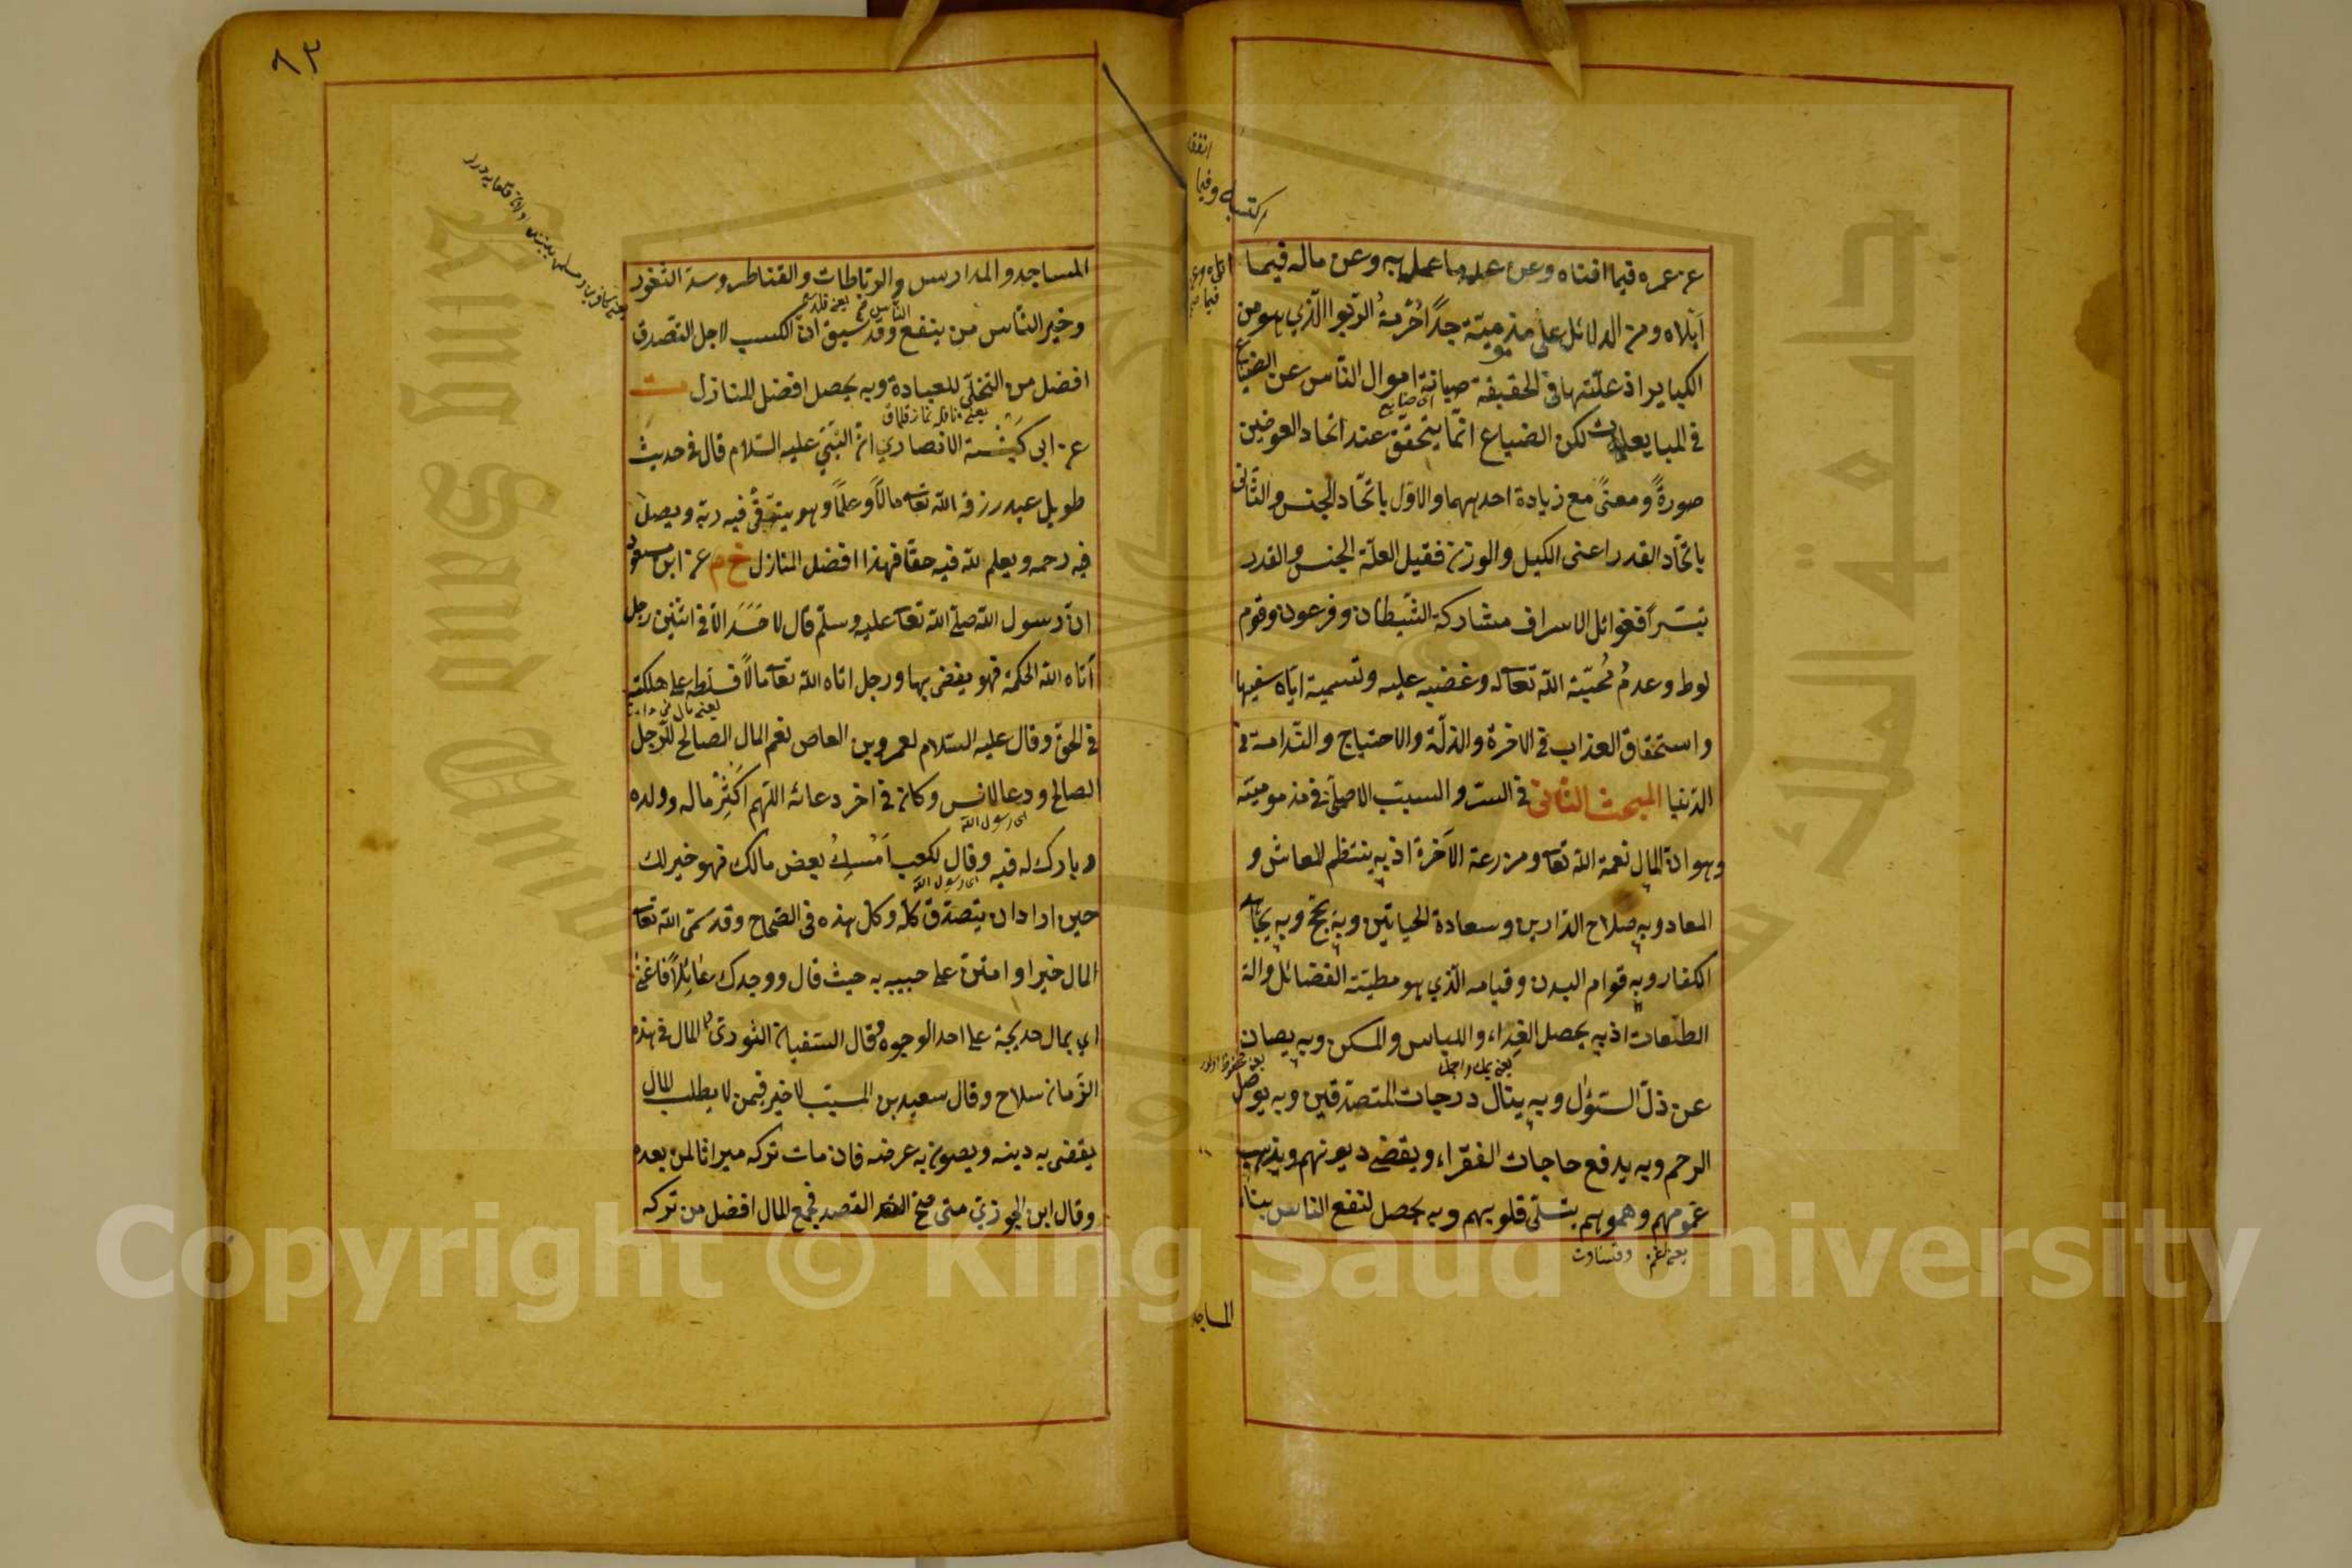 عن عمره فيما افناه وعن عمله ما عمل به وعن ماله فيما
اكتسبه وفيما
انفقه
ابلاه ومن الدلائل على مذمومیته جدًا حُرْمةُ الرّبوا الّذي هو من
الكبایر اذ علّتها فى الحقيقة صيانة اموال النّاس عن الضياع
فى المبایعات لكن الضياع انّما يتحقّق عند اتحاد العوضين
صورةً ومعنًى مع زيادة احدهما والاوّل باتّحاد الجنس والثانى
باتّحاد القدر اعنى الكيل والوزن فقيل العلّة الجنس والقدر
تيسّرًا فغوائل الاسراف مشاركة الشّيطان وفرعون وقوم
لوط وعدمُ مُحبّة الله تعالى له وغضبه عليه وتسمية ايّاه سفيها
واستحقاق العذاب فى الاخرة والذلّة والاحتياج والنّدامة فى
الدّنيا المبحث الثانى فى السرّ والسبب الاصلى فى مذمومیّته
وهو انّ المال نعمة الله تعالى ومزرعة الآخرة اذ به ينتظم المعاش و
المعاد وبه صلاح الدّارين وسعادة الحياتين وبه يحجّ وبه يجاهد
الكفار وبه قوام البدن وقيامه الّذي هو مطيّته الفضائل والة
الطّاعات اذ به يحصل الغِذاء واللباس والمسكن وبه يصان
عن ذلّ السّؤال وبه ينال درجات المتصدّقين وبه يوصل
الرحم وبه يدفع حاجات الفقراء ويقضى ديونهم ويذهب
غمومهم وهمومهم يتسلّى قلوبهم وبه يحصل لنفع الناس ببناء
المساجد
٨٣
المساجد والمدارس والرّباطات والقناطر وسدّ الثغور
وخير النّاس من ينفع الناس وقد سبق انّ الكسب لاجل التّصدق
افضل من التخلّى للعبادة وبه يحصل افضل المنازل ت
عن ابى كَبْشَة الانصاري انّ النّبَيّ عليه السّلام قال فى حديث
طويل عبد رزقه الله تعالى مالًا وعلمًا وهو يتّقى فيه ربه ويصل
فيه رحمه ويعلم لله فيه حقا فهذا افضل المنازل خ م عن ابن مسعود
انّ رسول الله صلى الله تعالى عليه وسلّم قال لا حَسَدَ الّا فى اثنين رجل
أتاه الله الحكمة فهو يقضى بها ورجل اتاه الله تعالى مالًا فسلّطه على هلكته
فى الحق وقال عليه السّلام لعمرو بن العاص نعم المال الصالح للرّجل
الصالح ودعا لانس وكان فى اخر دعائه اللهم اَكْثِرْ ماله وولده
اى رسول الله
وبارك له فيه وقال لكعب اَمْسِكْ بعض مالك فهو خير لك
اى رسول الله
حين اراد ان يتصدّق كلّه وكل هذه فى الصّحاح وقد سمّى الله تعالى
المال خيرا وامتنّ على حبيبه به حيث قال ووجدك عَائِلًا فاغنى
اي بمال خديجة على احد الوجوه وقال السّفيان الثّورى المال فى هذا
الزّمان سلاح وقال سعيد بن المسيّب لا خير فيمن لا يطلب المال
يقضى به دينه ويصون به عرضه فان مات تركه ميراثا لمن بعده
وقال ابن الجوزي متى صحّ القصد فجمع المال افضل من تركه
Copyright © King Saud University
King Saud University
جامعة الملك سعود
1957